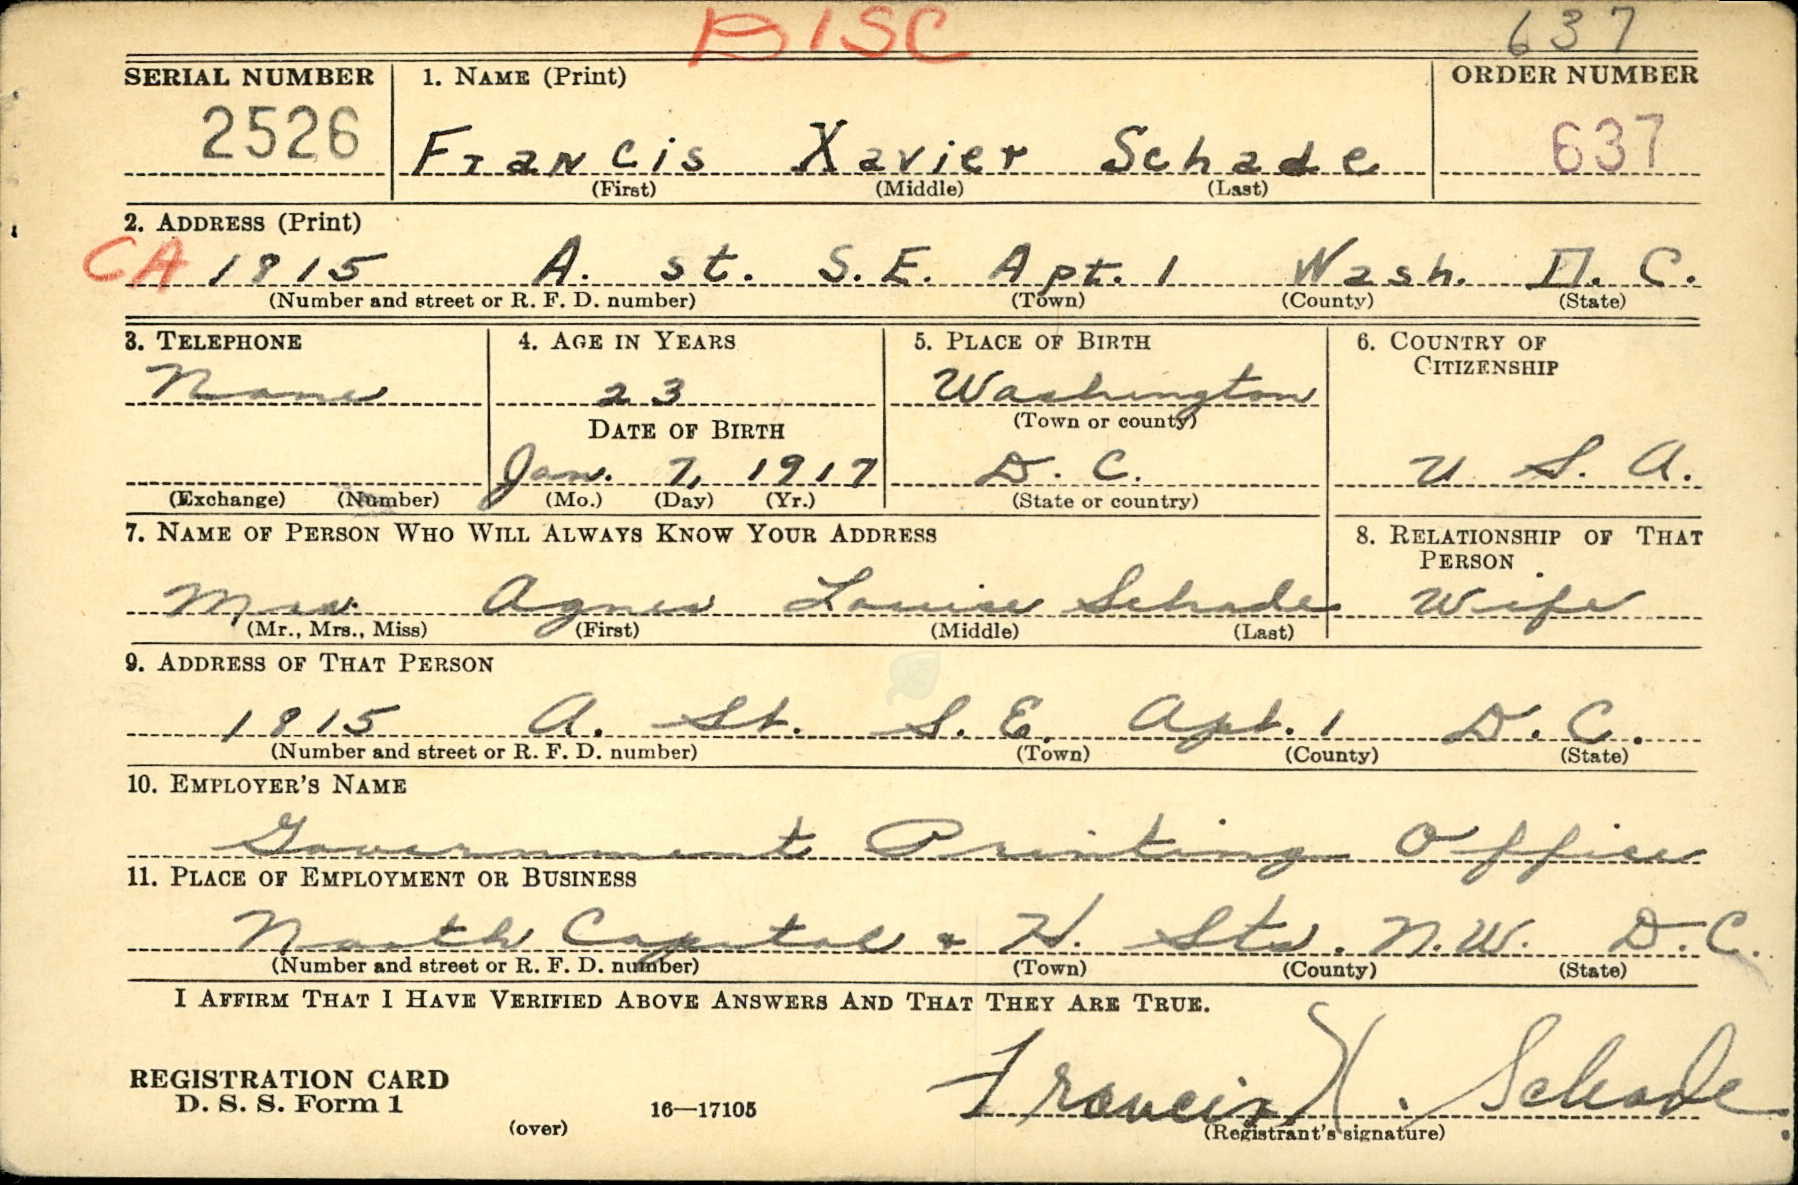 DISC
637
SERIAL NUMBER 1. NAME (Print) ORDER NUMBER
2526 Francis Xavier Schade 637
(First) (Middle) (Last)
2. ADDRESS (Print)
CA 1815 A. St. S. E. Apt. 1 Wash. D. C.
(Number and street or R. F. D. number) (Town) (County) (State)
3. TELEPHONE 4. AGE IN YEARS 5. PLACE OF BIRTH 6. COUNTRY OF CITIZENSHIP
None 23 Washington
DATE OF BIRTH (Town or county)
Jan. 7, 1917 D. C. U S. A.
(Exchange) (Number) (Mo.) (Day) (Yr.) (State or country)
7. NAME OF PERSON WHO WILL ALWAYS KNOW YOUR ADDRESS 8. RELATIONSHIP OF THAT PERSON
Mrs. Agnes Louise Schade Wife
(Mr., Mrs., Miss) (First) (Middle) (Last)
9. ADDRESS OF THAT PERSON
1815 A. St. S. E. Apt. 1 D. C.
(Number and street or R. F. D. number) (Town) (County) (State)
10. EMPLOYER'S NAME
Government Printing Office
11. PLACE OF EMPLOYMENT OR BUSINESS
North Capital & H. Sts. N.W. D.C.
(Number and street or R. F. D. number) (Town) (County) (State)
I AFFIRM THAT I HAVE VERIFIED ABOVE ANSWERS AND THAT THEY ARE TRUE.
REGISTRATION CARD
D. S. S. Form 1
(over) 16—17105
Francis X. Schade
(Registrant's signature)